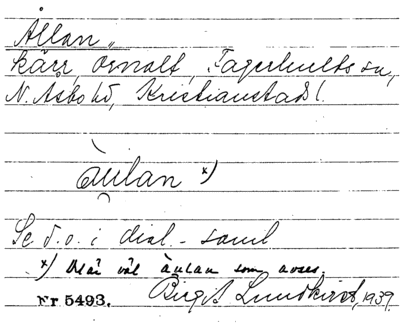 Ållan "
kärr, Ornalt, Fagerhults sn,
N. Åsbo hd, Kristianstads l.
àulan x)
Se d. o. i dial.-saml
x) Det är väl àulan som avses.
Nr 5493. Birgit Lundkvist, 1939.